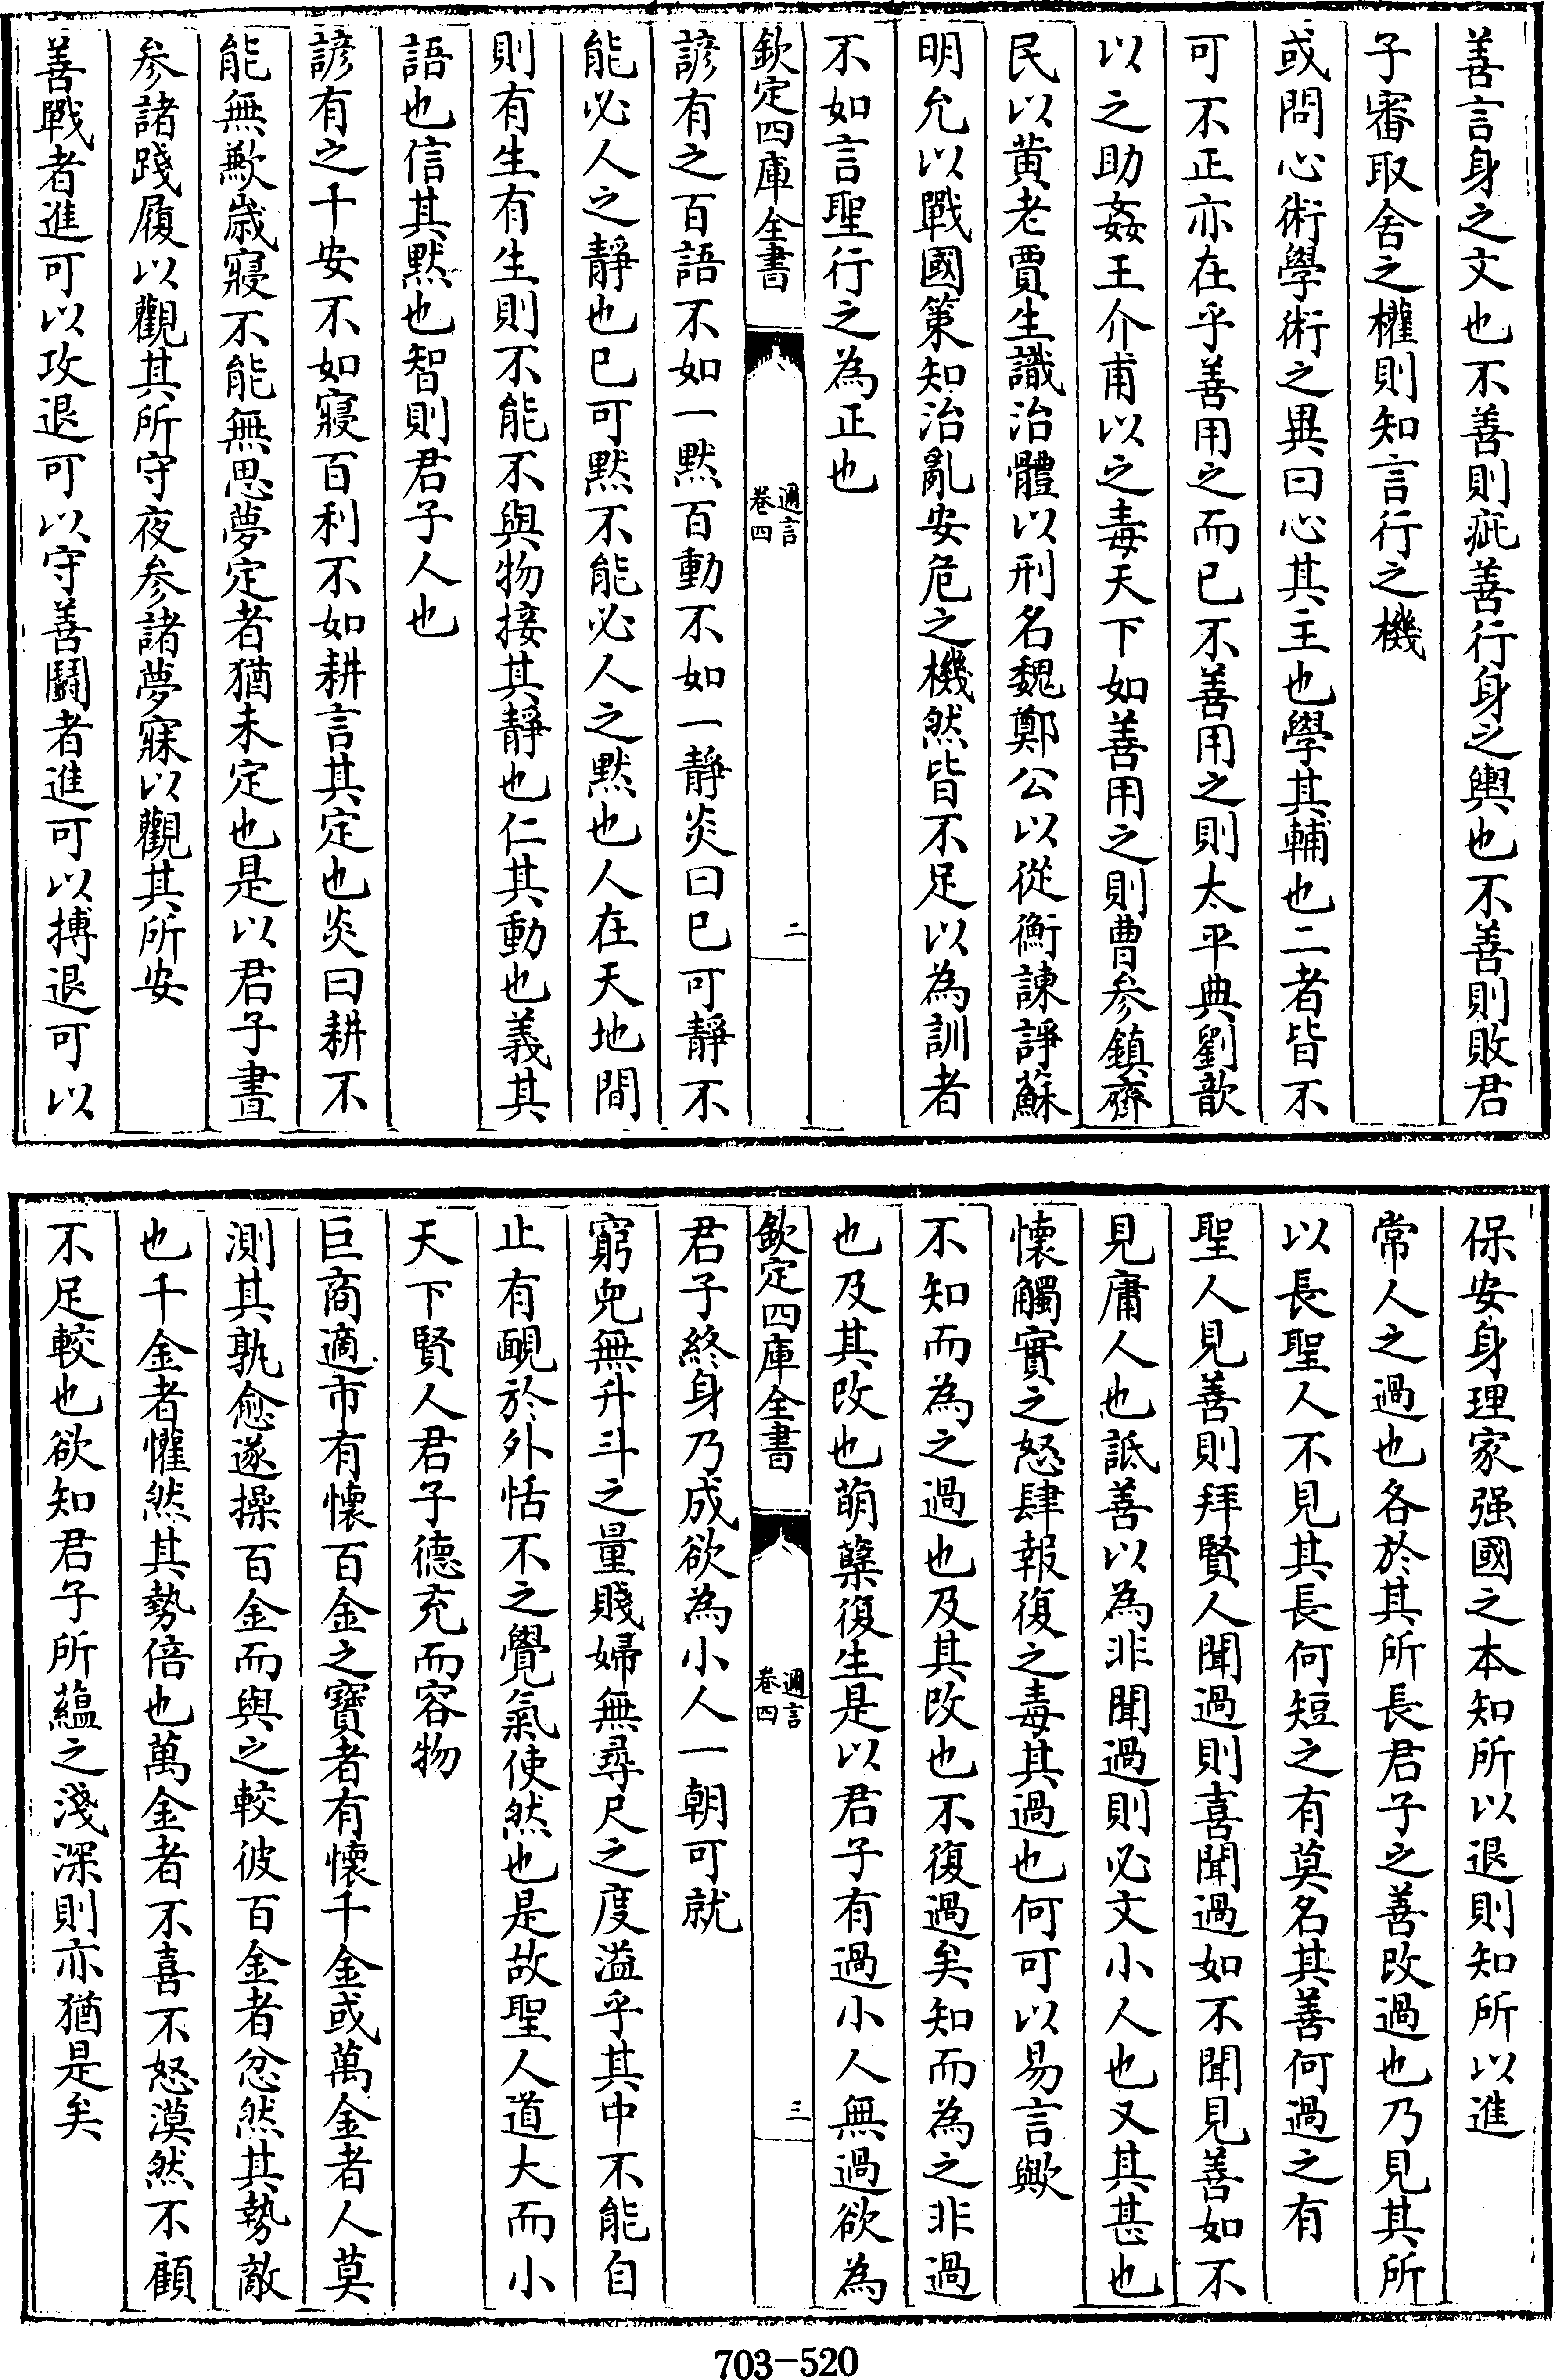 善言身之文也不善則疵善行身之輿也不善則敗君
子審取舍之權則知言行之機
或問心術學術之異曰心其主也學其輔也二者皆不
可不正亦在乎善用之而已不善用之則太平典劉歆
以之助姦王介甫以之毒天下如善用之則曹參鎮齊
民以黄老賈生識治體以刑名魏鄭公以從衡諫諍蘇
明允以戰國策知治亂安危之機然皆不足以為訓者
不如言聖行之為正也
欽定四庫全書
邇言
卷四
二
諺有之百語不如一黙百動不如一靜炎曰已可靜不
能必人之靜也已可黙不能必人之黙也人在天地間
則有生有生則不能不與物接其靜也仁其動也義其
語也信其黙也智則君子人也
諺有之千安不如寢百利不如耕言其定也炎曰耕不
能無歉歲寢不能無思夢定者猶未定也是以君子晝
參諸踐履以觀其所守夜參諸夢寐以觀其所安
善戰者進可以攻退可以守善鬭者進可以搏退可以
保安身理家强國之本知所以退則知所以進
常人之過也各於其所長君子之善改過也乃見其所
以長聖人不見其長何短之有莫名其善何過之有
聖人見善則拜賢人聞過則喜聞過如不聞見善如不
見庸人也詆善以為非聞過則必文小人也又其甚也
懷觸實之怒肆報復之毒其過也何可以易言歟
不知而為之過也及其改也不復過矣知而為之非過
也及其改也萌櫱復生是以君子有過小人無過欲為
欽定四庫全書
邇言
卷四
三
君子終身乃成欲為小人一朝可就
窮兜無升斗之量賤婦無尋尺之度溢乎其中不能自
止有䩄於外恬不之覺氣使然也是故聖人道大而小
天下賢人君子德充而容物
巨商適市有懷百金之寶者有懷千金或萬金者人莫
測其孰愈遂操百金而與之較彼百金者忿然其勢敵
也千金者懼然其勢倍也萬金者不喜不怒漠然不顧
不足較也欲知君子所蘊之淺深則亦猶是矣
703-520